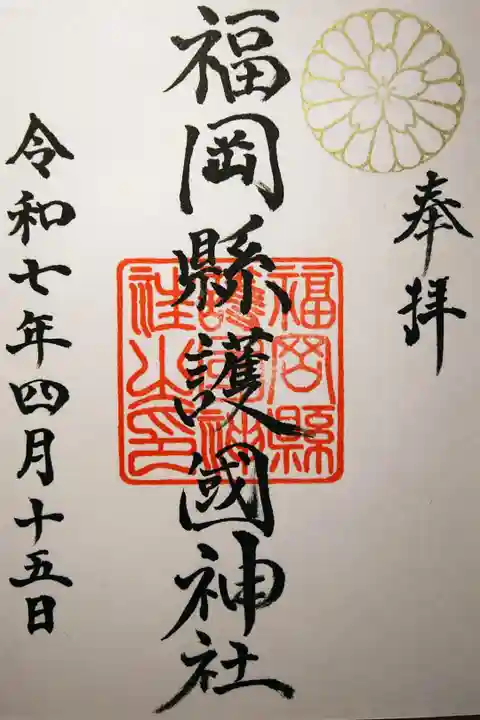 奉拝
福岡縣護國神社
福岡縣
護国神
社之印
令和七年四月十五日